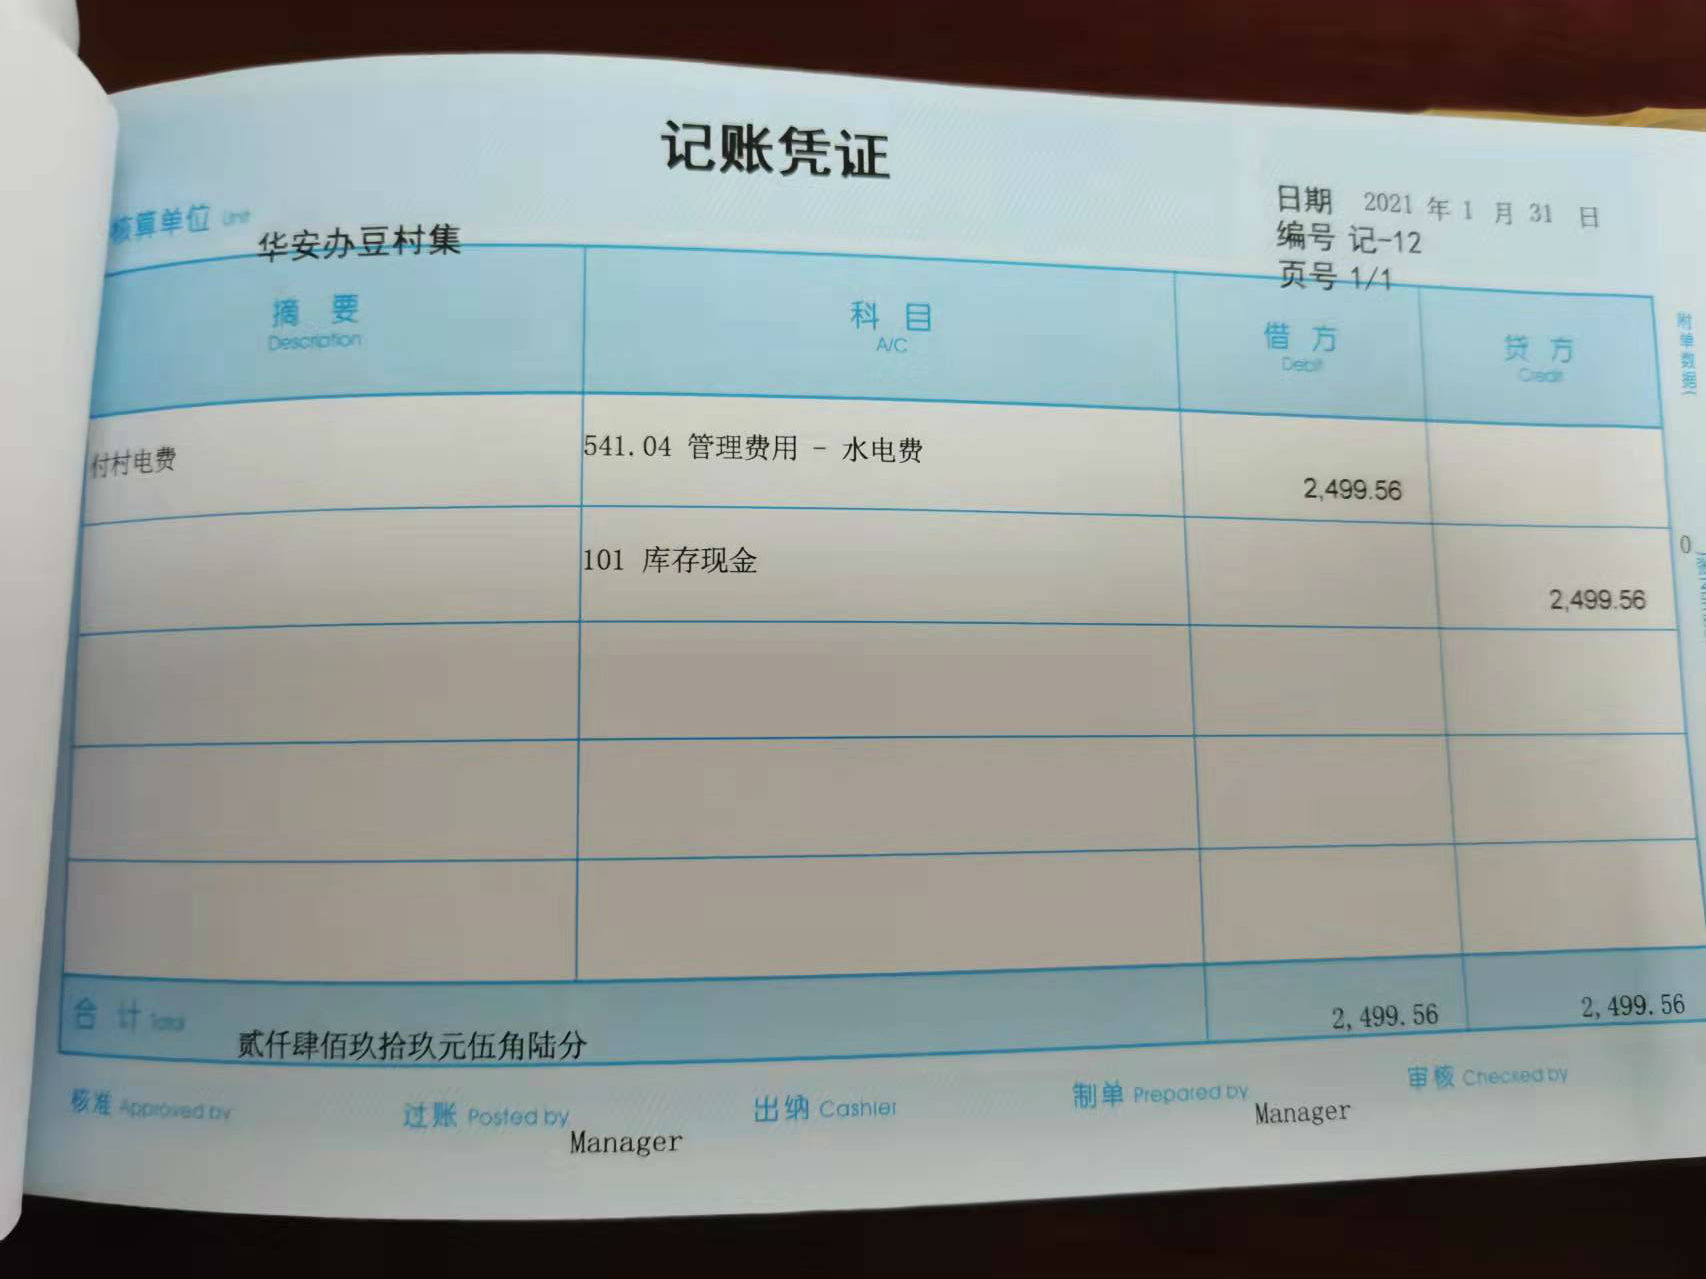 记账凭证
核算单位 Unit 华安办豆村集
日期 2021 年 1 月 31 日
编号 记-12
页号 1/1
摘 要 科 目 借 方 贷 方
Description A/C Debit Credit
付村电费 541.04 管理费用 - 水电费 2,499.56
101 库存现金 2,499.56
合 计 Total 贰仟肆佰玖拾玖元伍角陆分 2,499.56 2,499.56
核准 Approved by 过账 Posted by Manager 出纳 Cashier 制单 Prepared by Manager 审核 Checked by
附单数据(
0